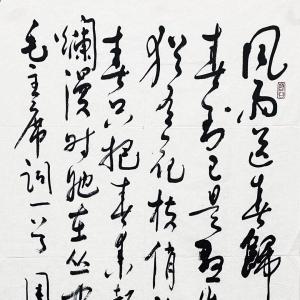 风雨送春歸
春到已是悬
犹有花枝俏
春只把春来报
爛漫时她在丛中
毛主席词一首 周